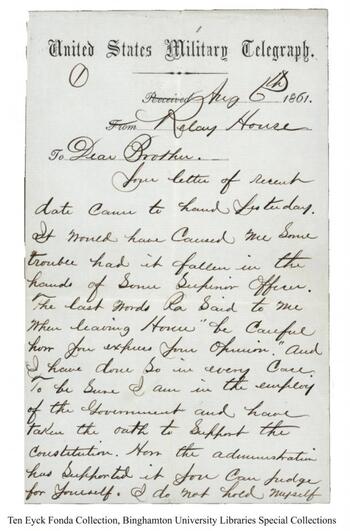 United States Military Telegraph.
1
Received Aug 6th 1861.
From Relay House
To Dear Brother.
Your letter of recent
date came to hand yesterday.
It would have caused me some
trouble had it fallen in the
hands of some Superior Officer.
The last words Pa said to me
when leaving home "be careful
how you express your opinion." And
I have done so in every case.
To be sure I am in the employ
of the Government and have
taken the oath to support the
Constitution. How the administration
has supported it you can judge
for yourself. I do not hold myself
Ten Eyck Fonda Collection, Binghamton University Libraries Special Collections